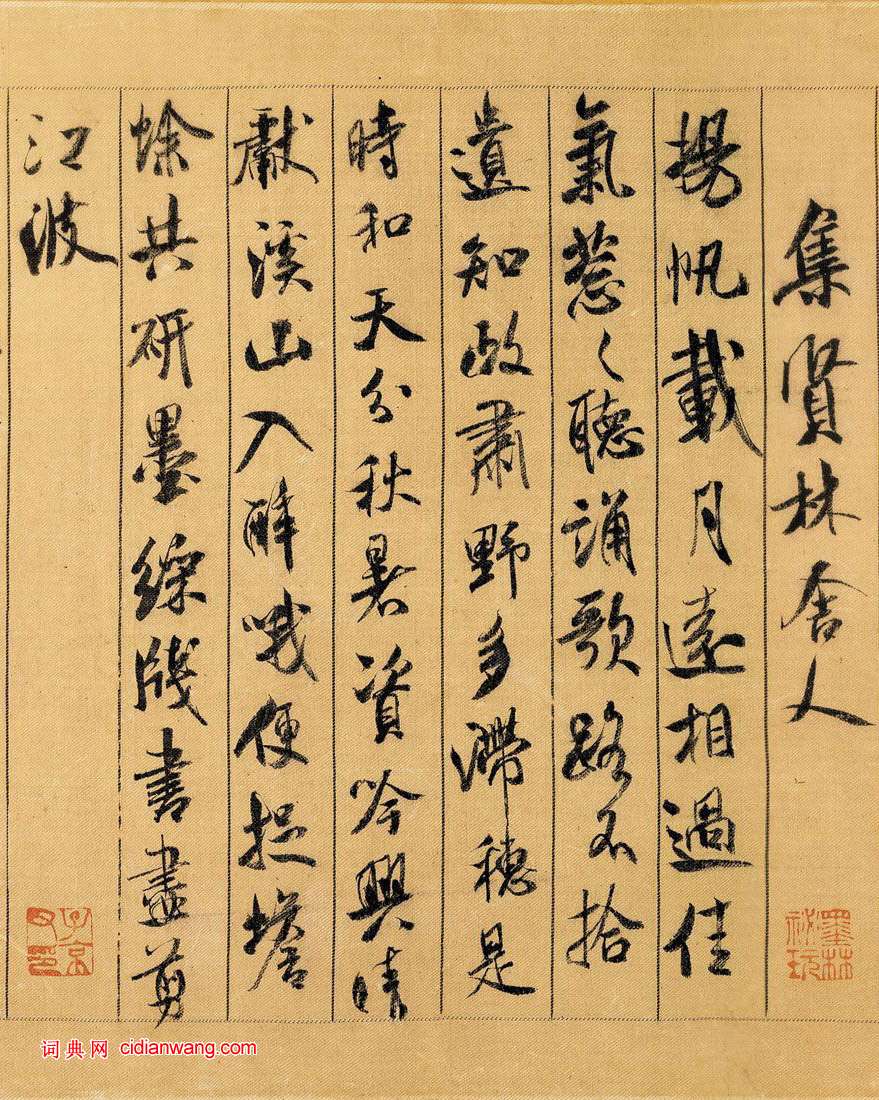 集賢林舍人
揚帆載月遠相過佳
氣葱々聽誦歌路不拾
遺知政肅野多滯穗是
時和天分秋暑資吟興晴
獻溪山入醉哦便捉蟾
蜍共研墨綵牋書盡剪
江波
墨林祕玩
子京父印
词典网 cidianwang.com